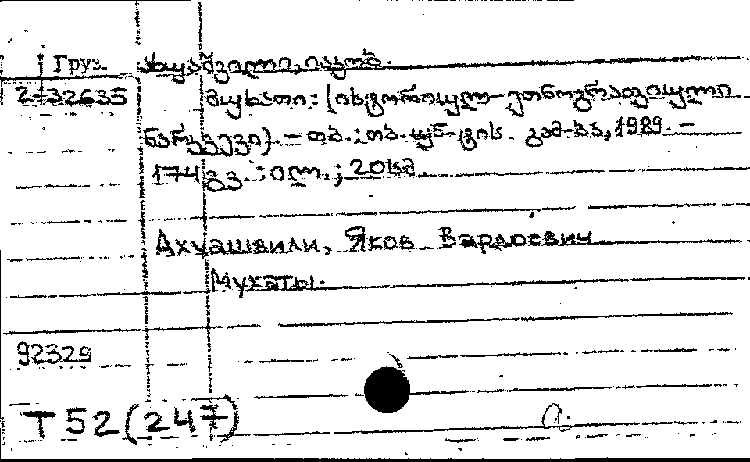 Груз. ახუაშვილი, იაკობ.
2-32635 მუხათი: (ისტორიულ-ეთნოგრაფიული
ნარკვევი). – თბ.: თბ. უნ-ტის გამ-ბა, 1989. –
174 გვ.: ილ.; 20სმ.
Ахуашвили, Яков Вардоевич
Мухаты.
92329
Т 52(247)